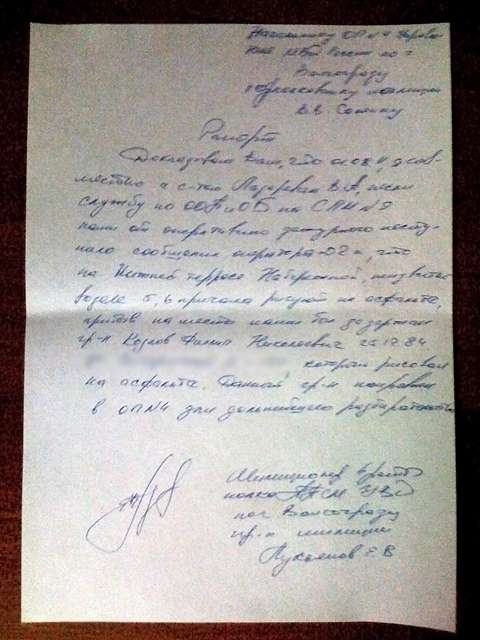 Начальнику ОП №4
по г
Волгограду
подполковнику милиции
В.В.
Рапорт
Докладываю Вам, что 01.08.11, я сов-
местно с с-том Лазаревым В.А, несли
службу по ООП и ОБ на СПМ №9
нами от оперативно дежурного посту-
пило сообщение оператора-02», что
на Нижней террасе Набережной, неизвестные
возле 5, 6 причала рисуют на асфальте,
прибыв на место нами был задержан
гр-н Козлов Филипп Николаевич 84
который рисовал
на асфальте. Данный гр-н направлен
в ОП №4 для дальнейшего разбирательства
Милиционер
полка ППСМ УВД
по г Волгограду
пр-к милиции
Лукьянов Е В